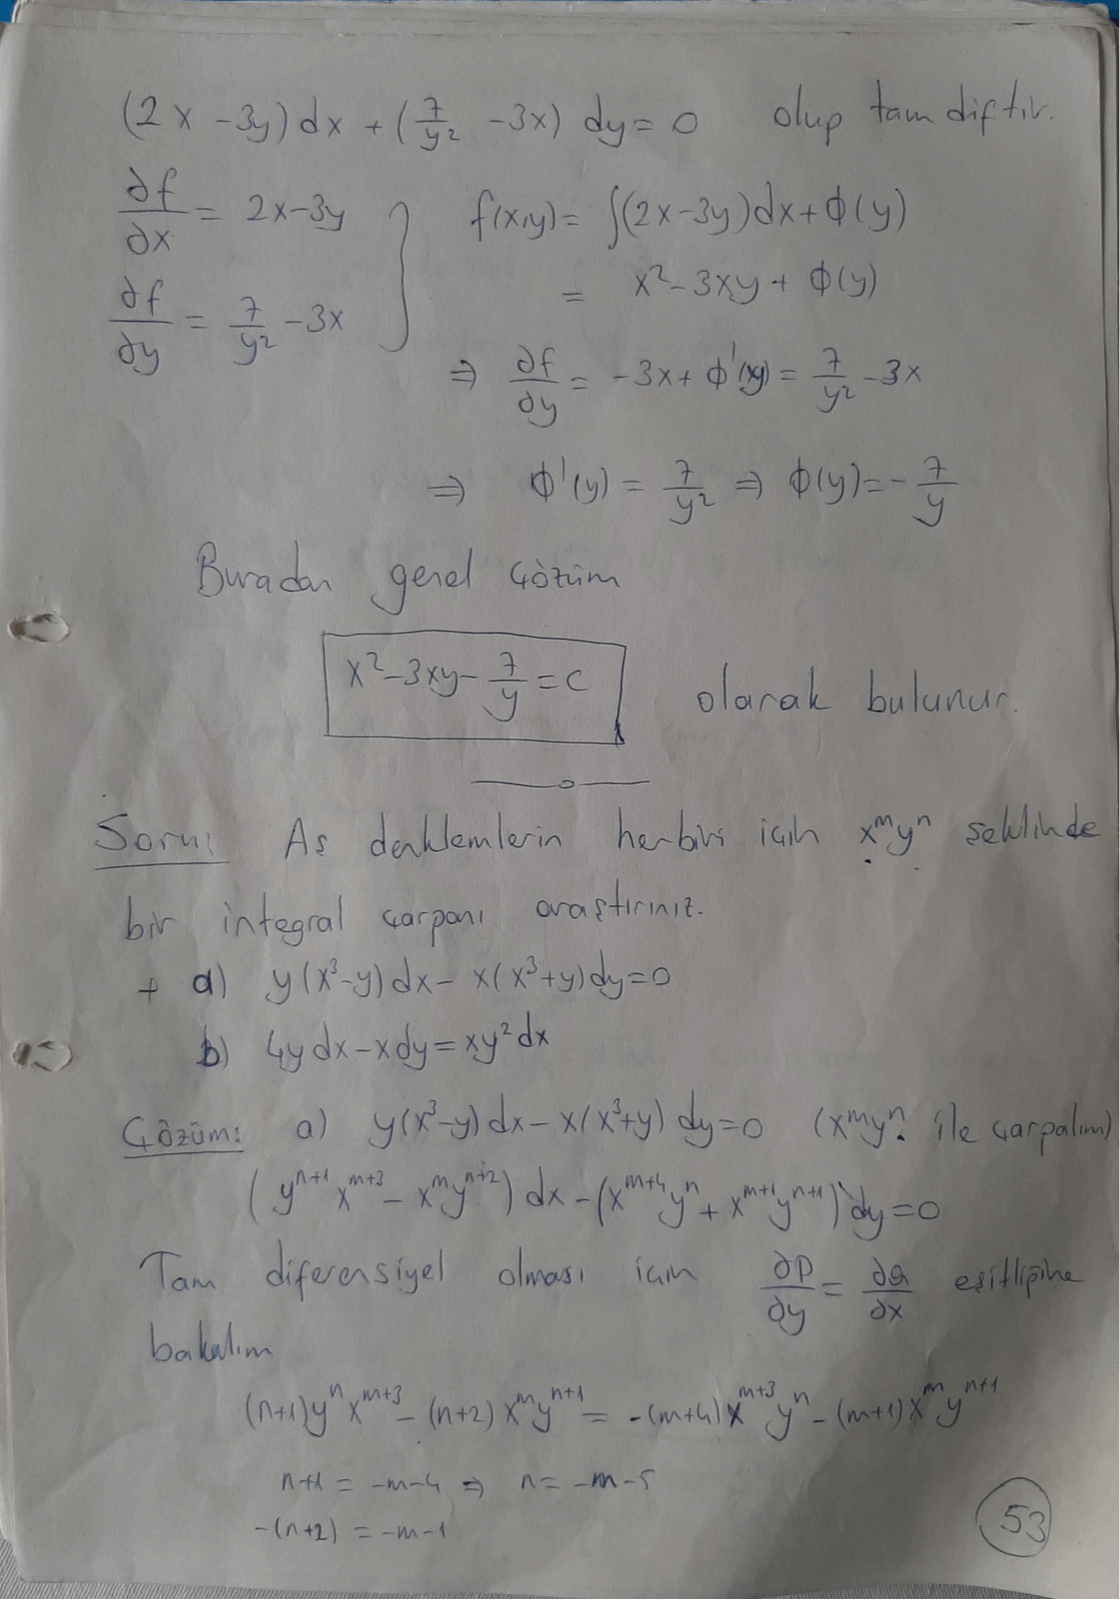 (2x -3y)dx + (7/y² -3x) dy = 0 olup tam diftir.
∂f/∂x = 2x-3y } f(x,y) = ∫(2x-3y)dx + ϕ(y)
= x² - 3xy + ϕ(y)
∂f/∂y = 7/y² - 3x
⇒ ∂f/∂y = -3x + ϕ'(y) = 7/y² - 3x
⇒ ϕ'(y) = 7/y² ⇒ ϕ(y) = - 7/y
Buradan genel çözüm
x² - 3xy - 7/y = c olarak bulunur.
Soru: Aş denklemlerin herbiri için xᵐyⁿ şeklinde
bir integral çarpanı araştırınız.
+ a) y(x³-y)dx - x(x³+y)dy = 0
b) 4y dx - x dy = xy² dx
Çözüm: a) y(x³-y)dx - x(x³+y) dy = 0 (xᵐyⁿ ile çarpalım)
(yⁿ⁺¹ xᵐ⁺³ - xᵐyⁿ⁺²) dx - (xᵐ⁺⁴yⁿ + xᵐ⁺¹yⁿ⁺¹) dy = 0
Tam diferensiyel olması için ∂P/∂y = ∂Q/∂x eşitliğine
bakalım
(n+1)yⁿxᵐ⁺³ - (n+2)xᵐyⁿ⁺¹ = -(m+4)xᵐ⁺³yⁿ - (m+1)xᵐyⁿ⁺¹
n+1 = -m-4 ⇒ n = -m-5
-(n+2) = -m-1
53